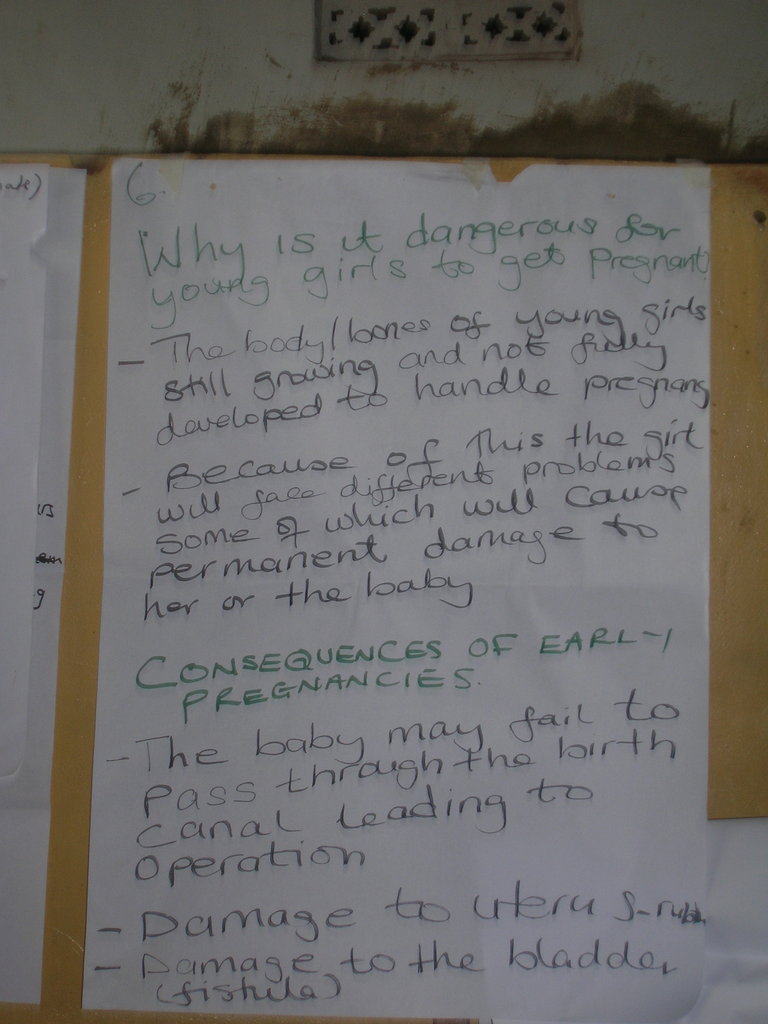 6.
Why is it dangerous for
young girls to get pregnant?
- The body/bones of young girls
still growing and not fully
developed to handle pregnanc
- Because of this the girl
will face different problems
some of which will cause
permanent damage to
her or the baby
CONSEQUENCES OF EARLY
PREGNANCIES.
- The baby may fail to
pass through the birth
canal leading to
operation
- Damage to uterus -
- Damage to the bladder
(fistula)